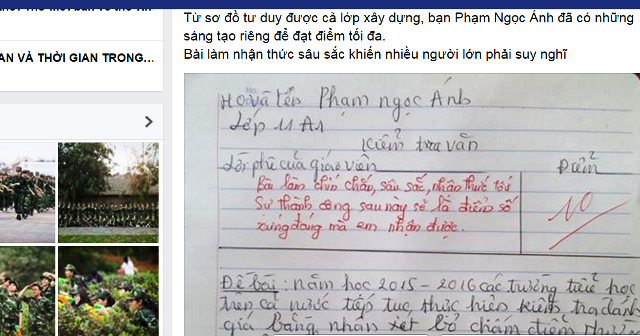 Từ sơ đồ tư duy được cả lớp xây dựng, bạn Phạm Ngọc Ánh đã có những
sáng tạo riêng để đạt điểm tối đa.
Bài làm nhận thức sâu sắc khiến nhiều người lớn phải suy nghĩ
AN VÀ THỜI GIAN TRONG...
Họ và tên Phạm ngọc Ánh
Lớp 11 A1
Kiểm tra văn
Lời phê của giáo viên
Điểm
Bài làm chín chắn, sâu sắc, nhận thức tốt
Sự thành công sau này sẽ là điểm số
xứng đáng mà em nhận được.
10
Đề bài: năm học 2015 - 2016 các trường tiểu học
trên cả nước tiếp tục thực hiện kiểm tra đánh
giá bằng nhận xét bỏ chấm điểm